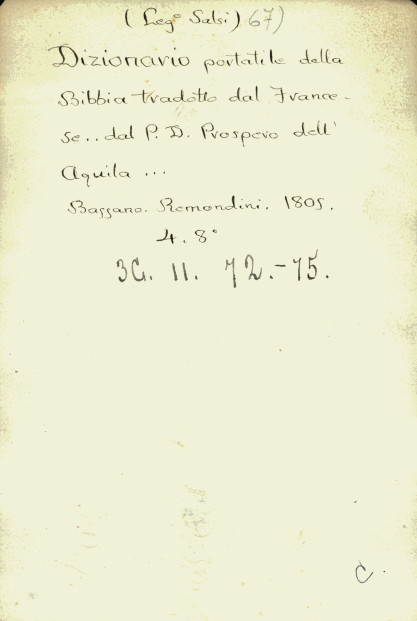 (Leg° Salsi) 67)
Dizionario portatile della
Bibbia tradotto dal France-
se.. dal P. D. Prospero dell'
Aquila ...
Bassano. Remondini. 1805.
4. 8°
3G. II. 72.-75.
C.